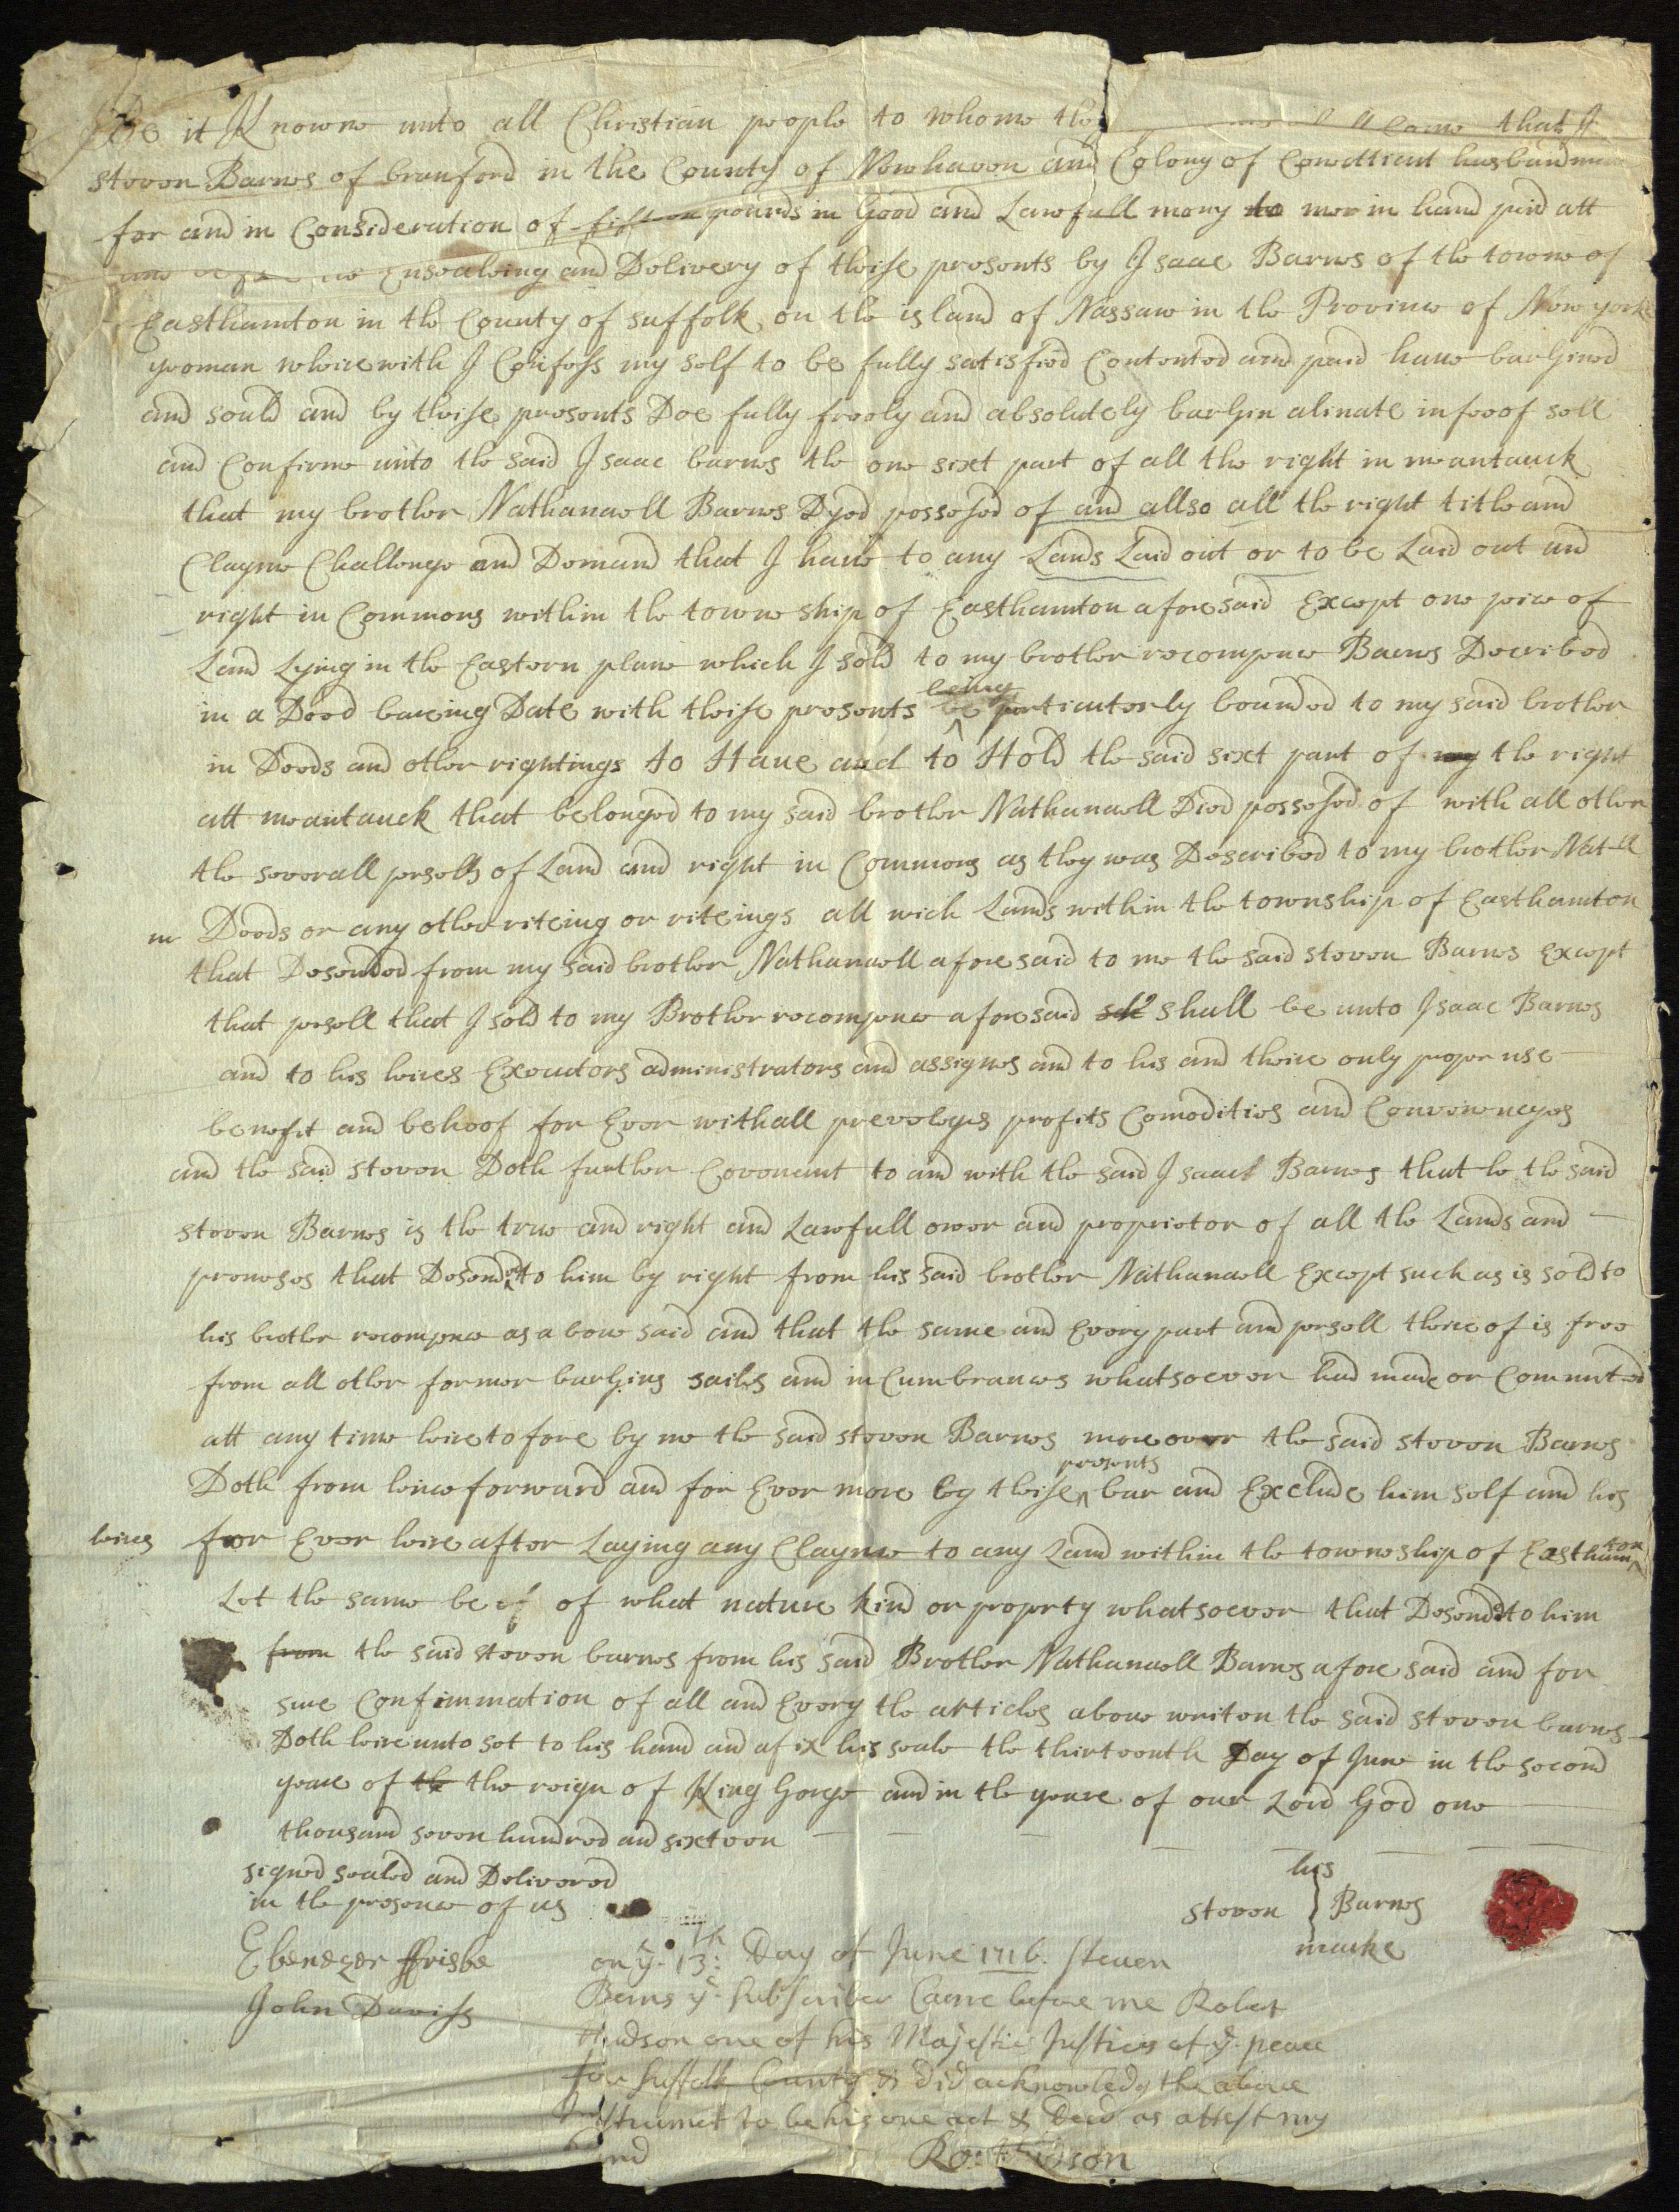 Be it Knowne unto all Christian people to whome the come that I
steven Barnes of branford in the County of Newhaven and Colony of Conetticut husbandman
for and in Consideration of pounds in Good and Lawfull mony to mee in hand paid att
Ensealeing and Delivery of theise presents by Isaac Barnes of the towne of
Easthamton in the County of suffolk on the island of Nassaw in the Province of New yorke
yeoman wheirewith I Confess my self to be fully satisfied Contented and paid have barGined
and sould and by theise presents Doe fully freely and absolutely barGin alinate infeoof sell
and Confirme unto the said Isaac barnes the one sixt part of all the right in meantauck
that my brother Nathanaell Barnes Dyed possesed of and allso all the right title and
Clayme Challenge and Demand that I have to any Lands Laid out or to be Laid out and
right in Commons within the towne ship of Easthamton afore said Except one peice of
Land Lying in the Eastern plane which I sold to my brother recompence Barnes Decribed
in a Deed bareing Date with theise presents being be particulerly bounded to my said brother
in Deeds and other rightings to Have and to Hold the said sixt part of my the right
att meantauck that belonged to my said brother Nathanaell Died possesed of with all other
the severall persells of Land and right in Commons as they was Described to my brother Natll
in Deeds or any other riteing or riteings all wich Lands within the township of Easthamton
that Desended from my said brother Nathanaell afore said to me the said steven Barnes Except
that persell that I sold to my Brother recompence afore said shall be unto Isaac Barnes
and to his heires Executors administrators and assignes and to his and theire only proper use
benefit and behoof for Ever withall preveleges profits Comodities and Conveneneyes
and the said steven Doth further Covenant to and with the said Isaac Barnes that he the said
steven Barnes is the true and right and Lawfull owner and proprietor of all the Lands and
premeses that Desended to him by right from his said brother Nathanaell Except such as is sold to
his brother recompence as above said and that the same and Every part and persell theire of is free
from all other former barGins sailes and inCumbrances whatsoever had made or Committed
att any time heire to fore by me the said steven Barnes moreover the said steven Barnes
Doth from hence forward and for Ever more by theise presents bar and Exclude him self and his
heires for Ever heire after Laying any Clayme to any Land within the towneship of Easthamton
Let the same be of of what nature kind or property whatsoever that Desended to him
from the said steven barnes from his said Brother Nathanaell Barnes afore said and for
sure Confirmation of all and Every the articles above writen the said steven barnes
Doth heire unto set to his hand and afix his seale the thirteenth Day of June in the second
yeare of th the reign of King Gorge and in the yeare of our Lord God one
thousand seven hundred and sixteen
signed sealed and Delivered
in the presence of us
his
steven Barnes
marke
Ebenezer ffrisbe
John Daviss
on ye 13th Day of June 1716 steven
Berns ye subscriber Came before me Robert
Hudson one of his Majestie Justices of ye peace
for Suffolk County & did acknowledg the above
Instrument to be his one act & Deed as attest my
hand
Ro: Hudson